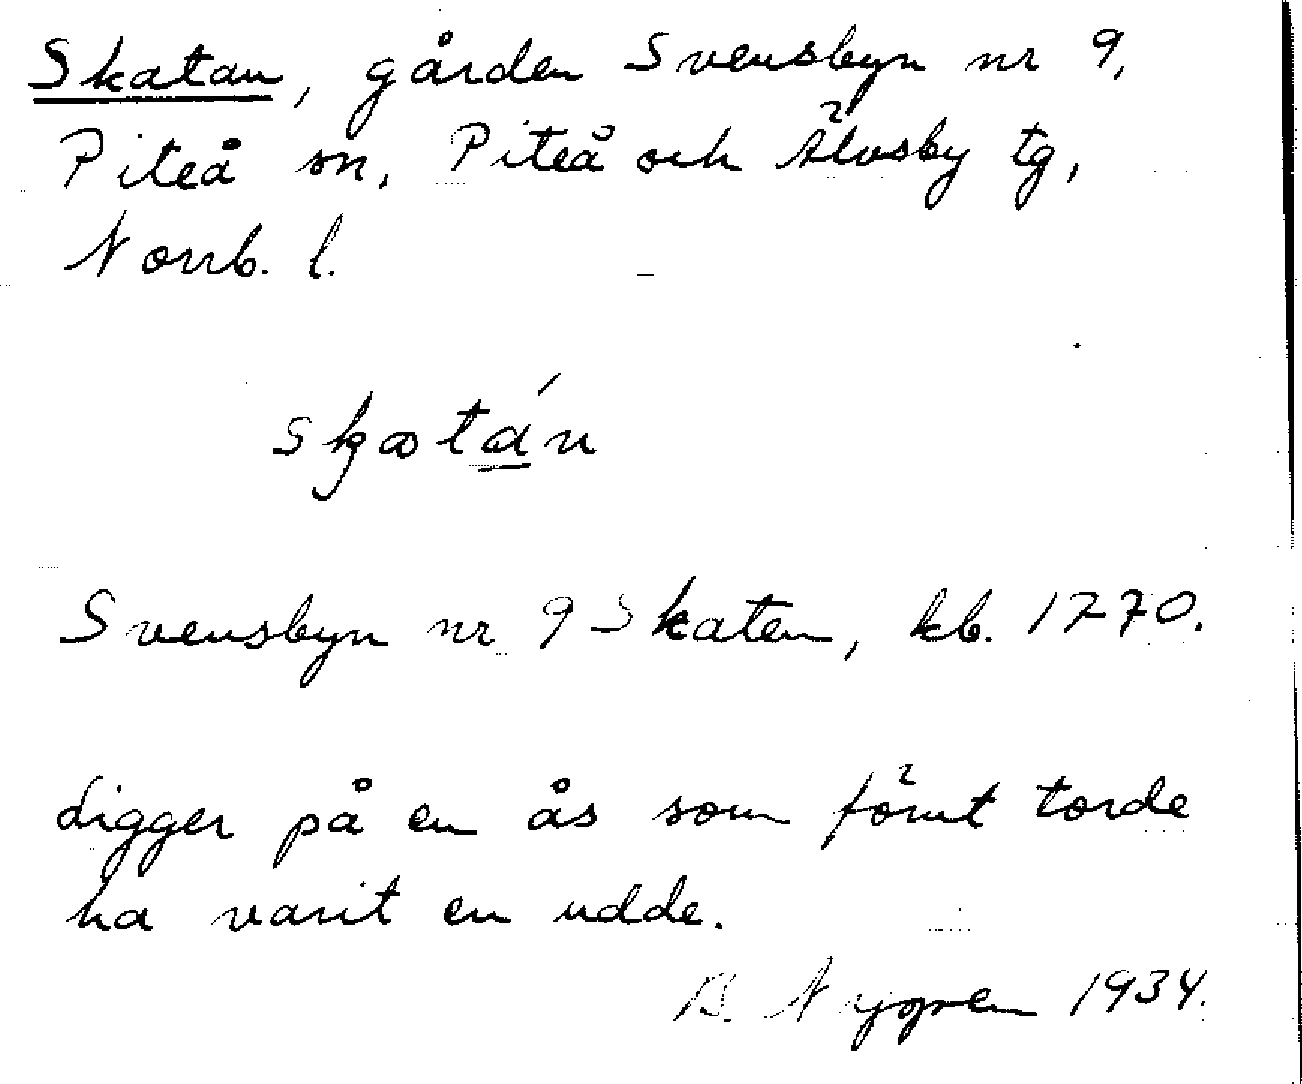 Skatan, gården Svensbyn nr 9,
Piteå sn, Piteå och Älvsby tg,
Norrb. l.
Svensbyn nr 9 Skaten, kb. 1770.
Ligger på en ås som förut torde
ha varit en udde.
B. Nygren 1934.